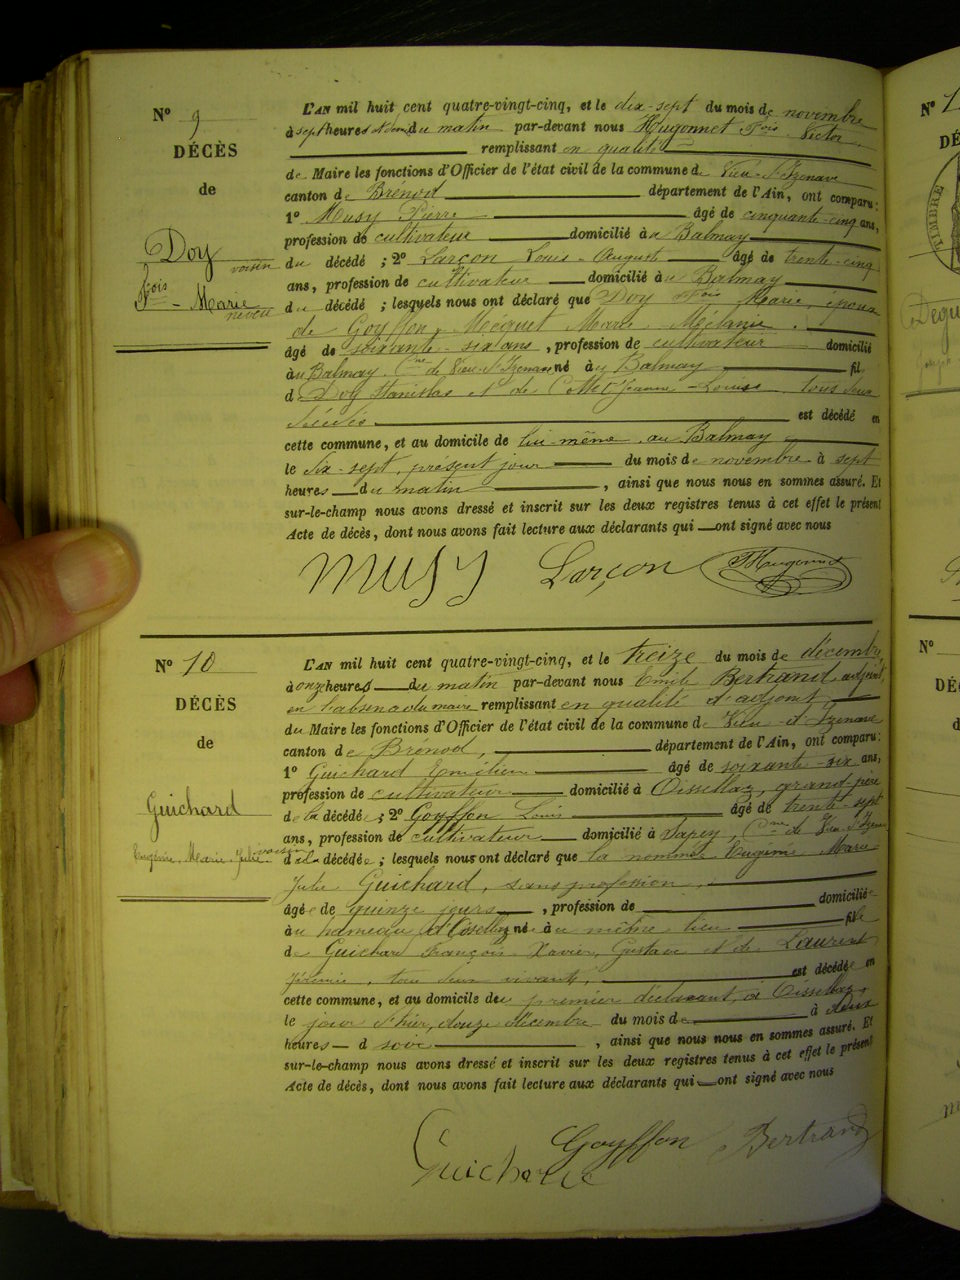 N° 9
DÉCÈS
de
Doy
fois
Marie
voisin
neveu
L'AN mil huit cent quatre-vingt-cinq, et le dix-sept du mois de novembre
à sept heures et demi du matin par-devant nous Hugonnet Fois Victor
remplissant en qualité
de Maire les fonctions d'Officier de l'état civil de la commune de Vieu-d'Izenave
canton de Brénod département de l'Ain, ont comparu:
1° Musy Pierre âgé de cinquante-cinq ans,
profession de cultivateur domicilié à u Balmay
du décédé ; 2° Larçon Louis-Auguste âgé de trente-cinq
ans, profession de cultivateur domicilié à u Balmay
du décédé ; lesquels nous ont déclaré que Doy Fois Marie, époux
de Goyffon, Marie Mélanie
âgé de soixante-six ans, profession de cultivateur domicilié
à u Balmay Cne de Vieu-d'Izenave né à u Balmay fil
d Doy Stanislas et de Jeanne-Louise tous deux
décédés est décédé en
cette commune, et au domicile de lui-même au Balmay
le dix-sept, présent jour du mois de novembre à sept
heures du matin, ainsi que nous nous en sommes assuré. Et
sur-le-champ nous avons dressé et inscrit sur les deux registres tenus à cet effet le présent
Acte de décès, dont nous avons fait lecture aux déclarants qui ont signé avec nous
Musy Larçon Hugonnet
N° 10
DÉCÈS
de
Guichard
Eugénie, Marie, Julie
voisin
L'AN mil huit cent quatre-vingt-cinq, et le treize du mois de décembre
à onze heures du matin par-devant nous Emile Bertrand adjoint,
en l'absence du maire remplissant en qualité d'adjoint
du Maire les fonctions d'Officier de l'état civil de la commune de Vieu-d'Izenave
canton de Brénod, département de l'Ain, ont comparu:
1° Guichard Emilien âgé de soixante-six ans,
profession de cultivateur domicilié à Oisselaz, grand-père
de la décédée ; 2° Goyffon Louis âgé de trente-sept
ans, profession de cultivateur domicilié à Tapey, Cne de Vieu-d'Izenave
d e la décédée ; lesquels nous ont déclaré que la nommée Eugénie Marie
Julie Guichard, sans profession,
âgée de quinze jours, profession de domiciliée
à u hameau d'Oisselaz née au même lieu fille
de Guichard François Xavier, Gustave et de Laurent
Jérémie, tous deux vivants, est décédée en
cette commune, et au domicile du premier déclarant, à Oisselaz,
le jour d'hier, douze décembre du mois de à deux
heures d soir, ainsi que nous nous en sommes assuré. Et
sur-le-champ nous avons dressé et inscrit sur les deux registres tenus à cet effet le présent
Acte de décès, dont nous avons fait lecture aux déclarants qui ont signé avec nous
Guichard Goyffon Bertrand
N°
TIMBRE
N°